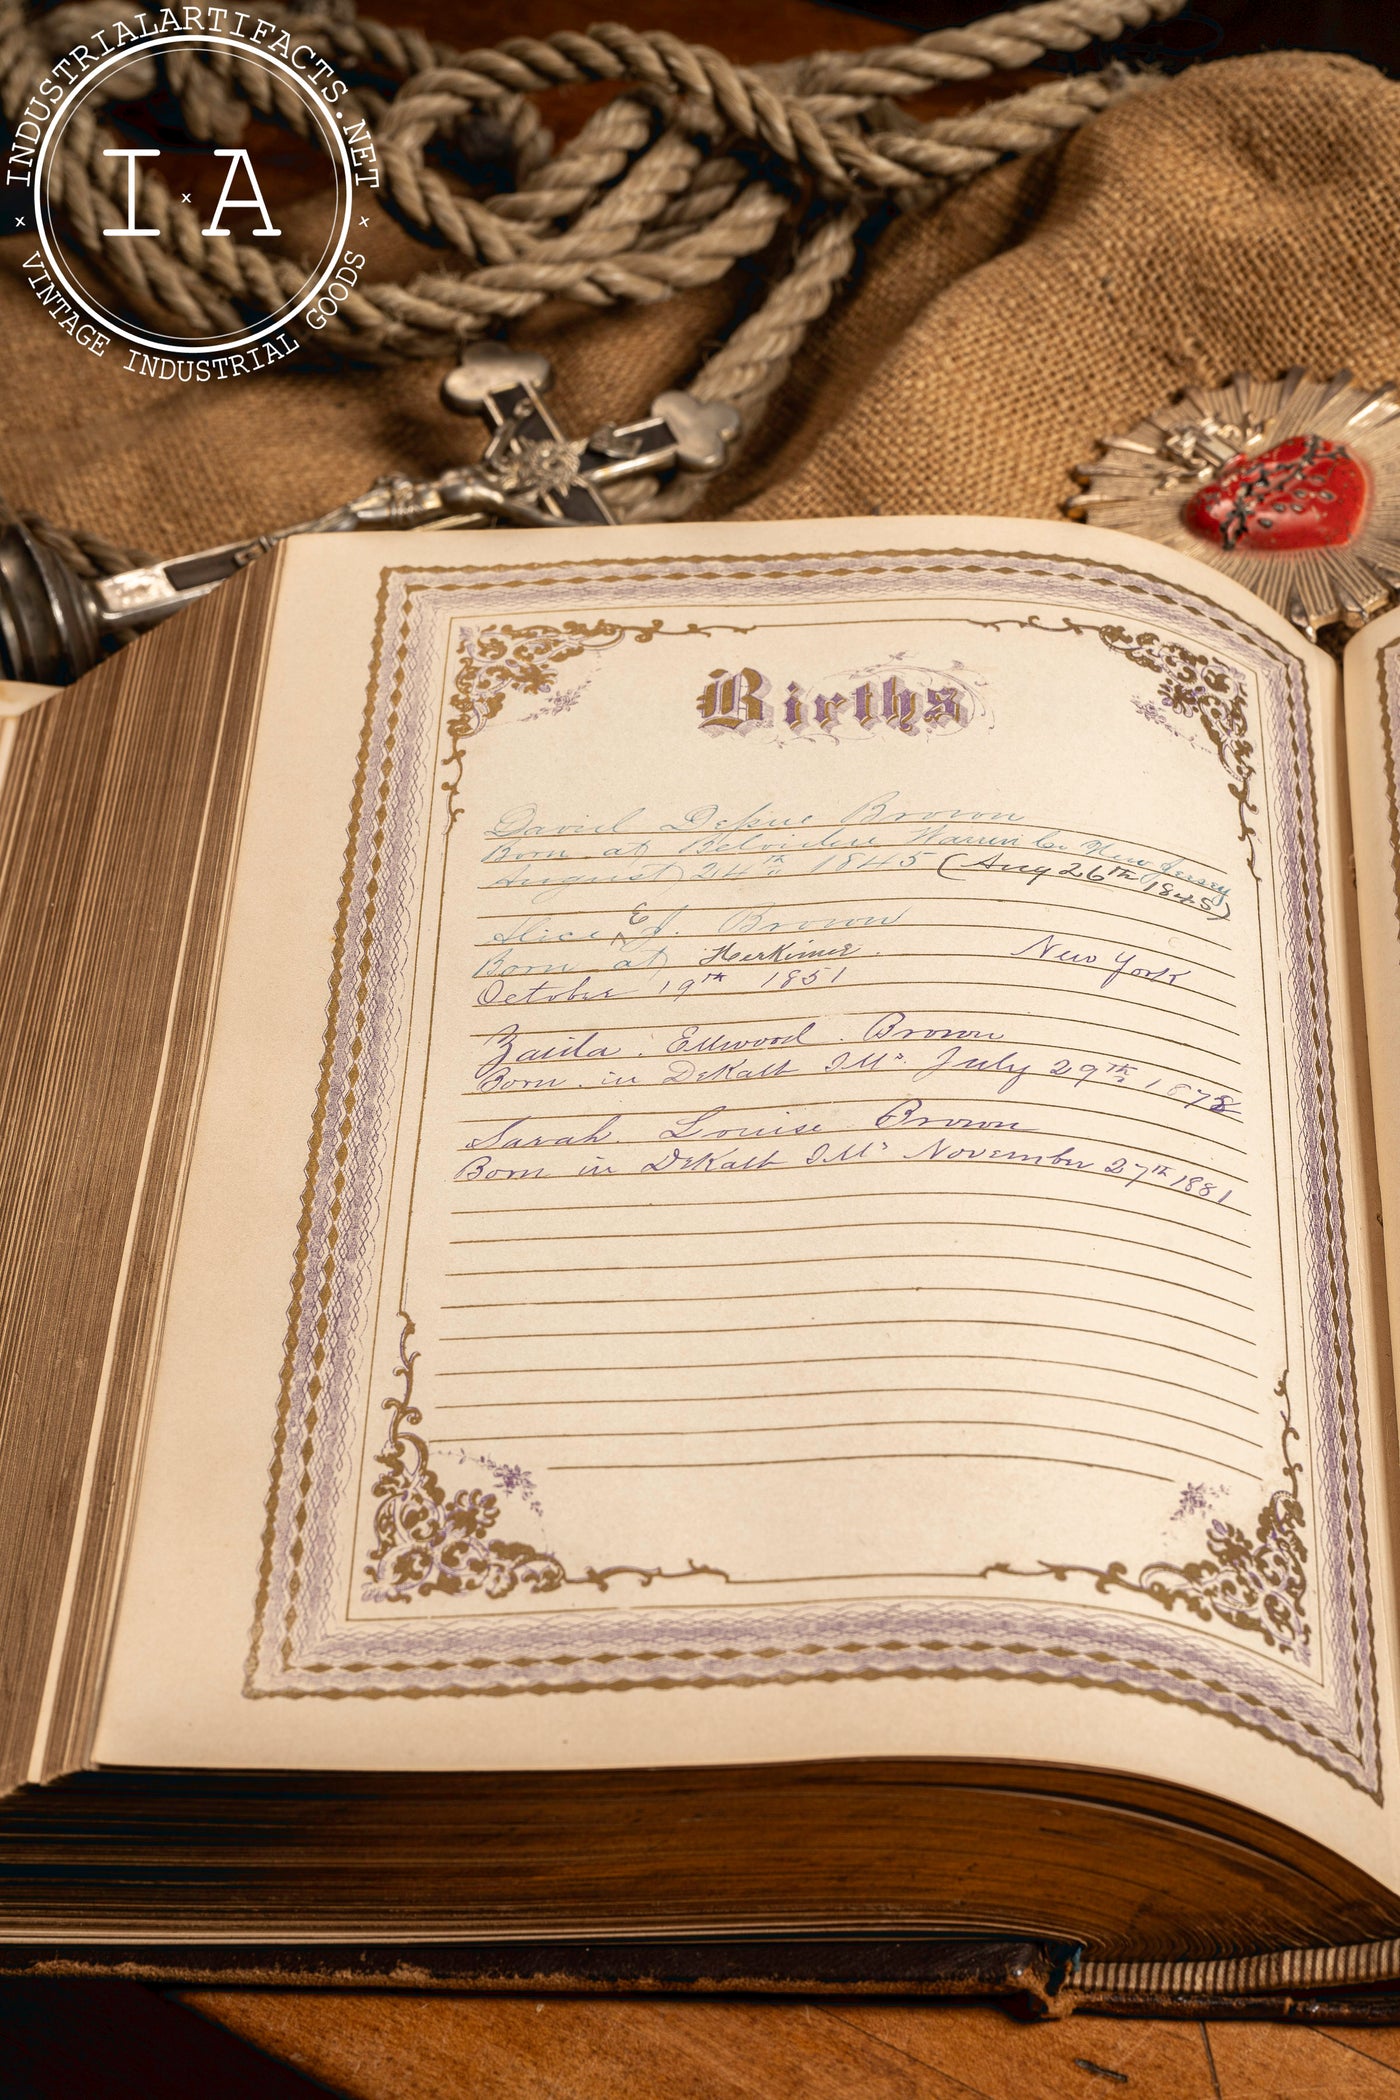 INDUSTRIALARTIFACTS.NET
I x A
VINTAGE INDUSTRIAL GOODS
Births
David Depue Brown
Born at Belvidere Warren Co New Jersey
August 24th 1845 (Aug 26th 1845)
E
Alice ^ J. Brown
Born at Herkimer. New York
October 19th 1851
Zaida. Ellwood. Brown
Born in DeKalb Ills. July 29th 1878
Sarah. Louise Brown
Born in DeKalb Ills November 27th 1881